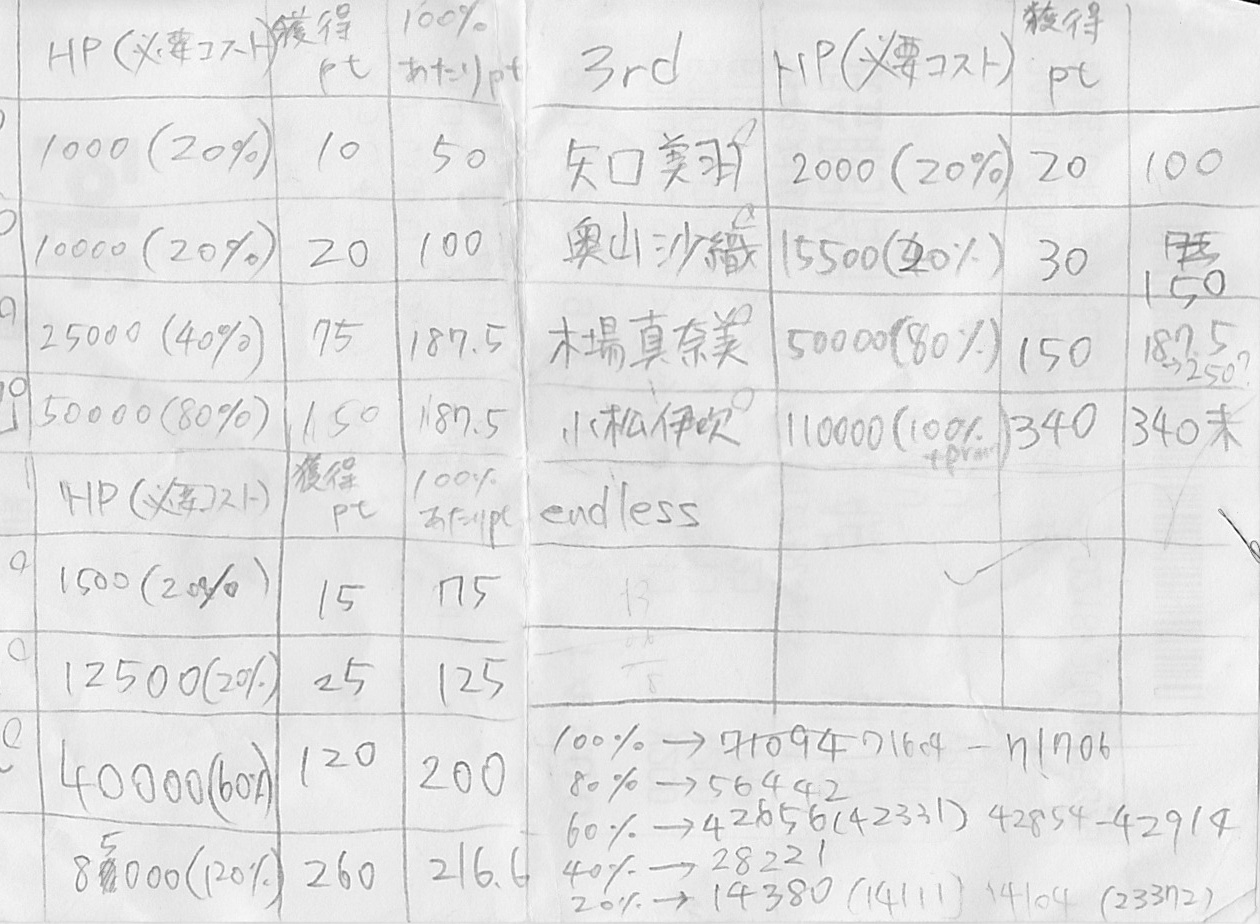 HP(必要コスト) 獲得pt 100%あたりpt
1000(20%) 10 50
10000(20%) 20 100
25000(40%) 75 187.5
50000(80%) 150 187.5
HP(必要コスト) 獲得pt 100%あたりpt
1500(20%) 15 75
12500(20%) 25 125
40000(60%) 120 200
85000(120%) 260 216.6
3rd HP(必要コスト) 獲得pt
矢口美羽 2000(20%) 20 100
奥山沙織 15500(20%) 30 150
木場真奈美 50000(80%) 150 187.5
→250?
小松伊吹 110000(100% 340 340未
endless
100% → 71094 71604 - 71706
80% → 56442
60% → 42656(42331) 42854-42914
40% → 28221
20% → 14380 (14111) 14104 (23372)